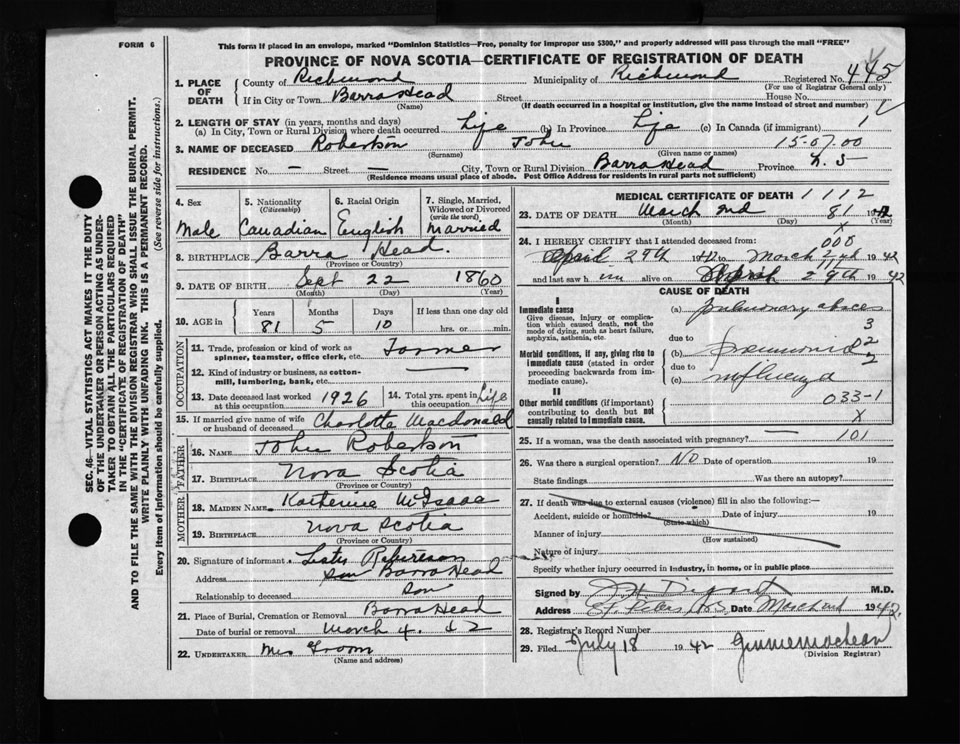 FORM 6
This form if placed in an envelope, marked "Dominion Statistics—Free, penalty for improper use $300," and properly addressed will pass through the mail "FREE"
PROVINCE OF NOVA SCOTIA—CERTIFICATE OF REGISTRATION OF DEATH
SEC. 46—VITAL STATISTICS ACT MAKES IT THE DUTY
OF THE UNDERTAKER OR PERSON ACTING AS UNDER-
TAKER TO OBTAIN ALL THE PARTICULARS REQUIRED
IN THE "CERTIFICATE OF REGISTRATION OF DEATH"
AND TO FILE THE SAME WITH THE DIVISION REGISTRAR WHO SHALL ISSUE THE BURIAL PERMIT.
WRITE PLAINLY WITH UNFADING INK. THIS IS A PERMANENT RECORD.
Every item of Information should be carefully supplied. (See reverse side for instructions.)
1. PLACE OF DEATH County of Richmond Municipality of Richmond Registered No. 445
(For use of Registrar General only)
If in City or Town Barra Head Street House No.
(Name) (If death occurred in a hospital or institution, give the name instead of street and number)
2. LENGTH OF STAY (in years, months and days)
(a) In City, Town or Rural Division where death occurred Life (b) In Province Life (c) In Canada (if immigrant)
3. NAME OF DECEASED Robertson John 15-07.00
(Surname) (Given name or names)
RESIDENCE No. — Street — City, Town or Rural Division Barra Head Province N.S
(Residence means usual place of abode. Post Office Address for residents in rural parts not sufficient)
4. Sex Male
5. Nationality (Citizenship) Canadian
6. Racial Origin English
7. Single, Married, Widowed or Divorced (write the word) Married
8. BIRTHPLACE Barra Head.
(Province or Country)
9. DATE OF BIRTH Sept 22 1860
(Month) (Day) (Year)
10. AGE in Years Months Days If less than one day old
81 5 10 hrs. or min.
OCCUPATION
11. Trade, profession or kind of work as spinner, teamster, office clerk, etc. Farmer
12. Kind of industry or business, as cotton-mill, lumbering, bank, etc. —
13. Date deceased last worked at this occupation 1926
14. Total yrs. spent in this occupation Life
15. If married give name of wife or husband of deceased Charlotte Macdonald
FATHER
16. NAME John Robertson
17. BIRTHPLACE Nova Scotia
(Province or Country)
MOTHER
18. MAIDEN NAME Katherine McIsaac
19. BIRTHPLACE Nova Scotia
(Province or Country)
20. Signature of informant
Address son Barra Head
Relationship to deceased son
21. Place of Burial, Cremation or Removal Barra Head
Date of burial or removal March 4. 42
22. UNDERTAKER Mrs
(Name and address)
MEDICAL CERTIFICATE OF DEATH 1112
23. DATE OF DEATH March 2nd 81 19
(Month) (Day) (Year)
X
24. I HEREBY CERTIFY that I attended deceased from: 000
April 29th 1942 to March 2nd 1942
and last saw h im alive on 29th 1942
CAUSE OF DEATH
I
Immediate cause
Give disease, injury or complication which caused death, not the mode of dying, such as heart failure, asphyxia, asthenia, etc.
(a) pulmonary abces
3
due to
Morbid conditions, if any, giving rise to immediate cause (stated in order proceeding backwards from immediate cause).
(b) pneumonia 02
2
due to
(c) influenza
II
Other morbid conditions (if important) contributing to death but not causally related to immediate cause.
033-1
X
25. If a woman, was the death associated with pregnancy? — 101
26. Was there a surgical operation? No Date of operation 19
State findings Was there an autopsy?
27. If death was due to external causes (violence) fill in also the following:—
Accident, suicide or homicide? Date of injury 19
(State which)
Manner of injury
(How sustained)
Nature of injury
Specify whether injury occurred in Industry, in home, or in public place
Signed by M.D.
Address St Peters Date March 2nd 1942
28. Registrar's Record Number
29. Filed July 18 1942
(Division Registrar)